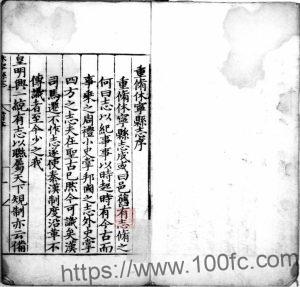 重脩休寧縣志序
重脩休寧縣志成或曰邑舊有志脩之
何曰志以紀事事以時起時有今古而
事業之周禮小史掌邦國之志外史掌
四方之志夫在聖古已然今可識矣漢
司馬遷不作志遂使秦漢制度沿革不
傳識者至今少之我
皇明興一統有志以職蜀天下規制亦云備
https://www.100fc.com